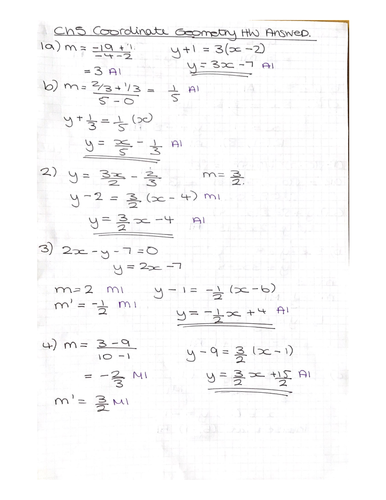 Ch5 Coordinate Geometry HW Answers.
1a) m = -19 + 1 / -4 - 2    y + 1 = 3(x - 2)
= 3 A1    y = 3x - 7 A1
b) m = 2/3 + 1/3 / 5 - 0 = 1/5 A1
y + 1/3 = 1/5 (x)
y = x/5 - 1/3 A1
2) y = 3x/2 - 2/3    m = 3/2
y - 2 = 3/2 (x - 4) M1
y = 3/2 x - 4 A1
3) 2x - y - 7 = 0
y = 2x - 7
m = 2 M1    y - 1 = -1/2 (x - 6)
m' = -1/2 M1    y = -1/2 x + 4 A1
4) m = 3 - 9 / 10 - 1    y - 9 = 3/2 (x - 1)
= -2/3 M1    y = 3/2 x + 15/2 A1
m' = 3/2 M1